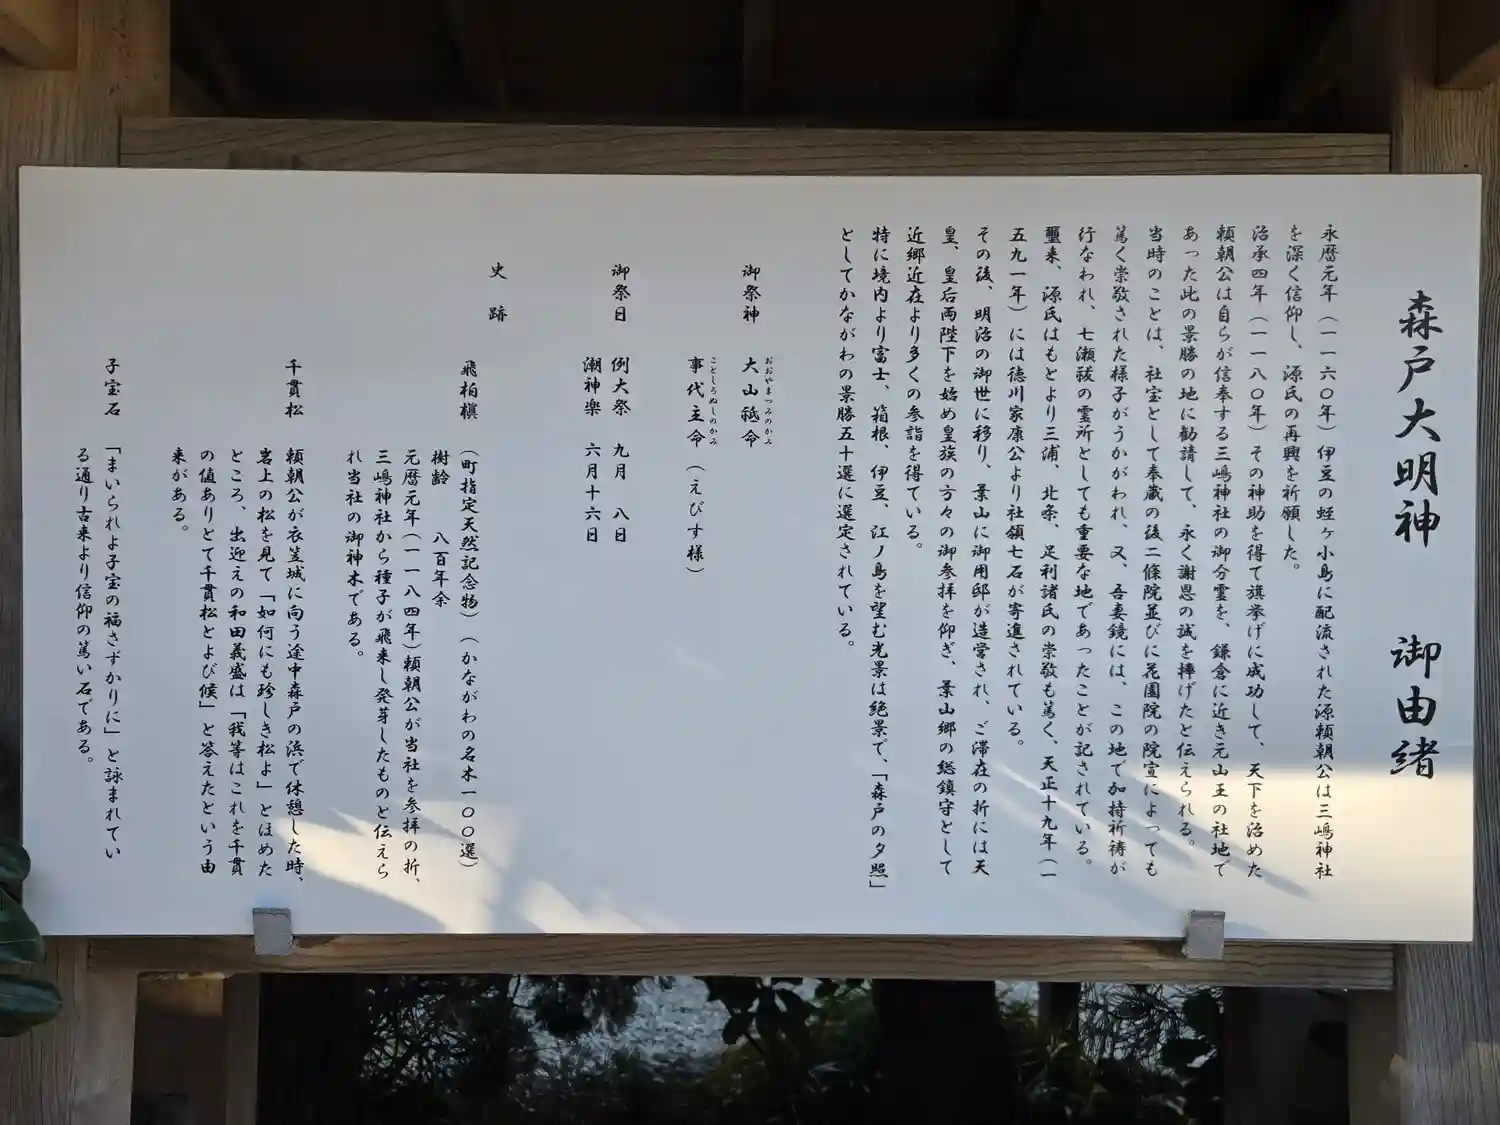 森戸大明神 御由緒
永暦元年（一一六〇年）伊豆の蛭ヶ小島に配流された源頼朝公は三嶋神社
を深く信仰し、源氏の再興を祈願した。
治承四年（一一八〇年）その神助を得て旗挙げに成功して、天下を治めた
頼朝公は自らが信奉する三嶋神社の御分霊を、鎌倉に近き元山王の社地で
あった此の景勝の地に勧請して、永く謝恩の誠を捧げたと伝えられる。
当時のことは、社宝として奉蔵の後二條院並びに花園院の院宣によっても
篤く崇敬された様子がうかがわれ、又、吾妻鏡には、この地で加持祈祷が
行なわれ、七瀬祓の霊所としても重要な地であったことが記されている。
爾来、源氏はもとより三浦、北条、足利諸氏の崇敬も篤く、天正十九年（一
五九一年）には徳川家康公より社領七石が寄進されている。
その後、明治の御世に移り、葉山に御用邸が造営され、ご滞在の折には天
皇、皇后両陛下を始め皇族の方々の御参拝を仰ぎ、葉山郷の総鎮守として
近郷近在より多くの参詣を得ている。
特に境内より富士、箱根、伊豆、江ノ島を望む光景は絶景で、「森戸の夕照」
としてかながわの景勝五十選に選定されている。
御祭神 大山祗命
おおやまつみのかみ
事代主命（えびす様）
ことしろぬしのかみ
御祭日 例大祭 九月 八日
潮神楽 六月十六日
史跡
飛柏槇 （町指定天然記念物）（かながわの名木一〇〇選）
樹齢 八百年余
元暦元年（一一八四年）頼朝公が当社を参拝の折、
三嶋神社から種子が飛来し発芽したものと伝えら
れ当社の御神木である。
千貫松 頼朝公が衣笠城に向う途中森戸の浜で休憩した時、
岩上の松を見て「如何にも珍しき松よ」とほめた
ところ、出迎えの和田義盛は「我等はこれを千貫
の値ありとて千貫松とよび候」と答えたという由
来がある。
子宝石 「まいられよ子宝の福さずかりに」と詠まれてい
る通り古来より信仰の篤い石である。